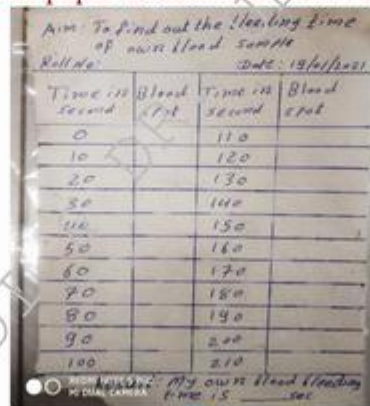 Aim: To find out the bleeding time
of own blood sample
Roll No: Date: 19/01/2021
Time in second Blood spot Time in second Blood spot
0 110
10 120
20 130
30 140
40 150
50 160
60 170
70 180
80 190
90 200
100 210
My own blood bleeding
time is ____ sec
REDMI NOTE 5 PRO
MI DUAL CAMERA